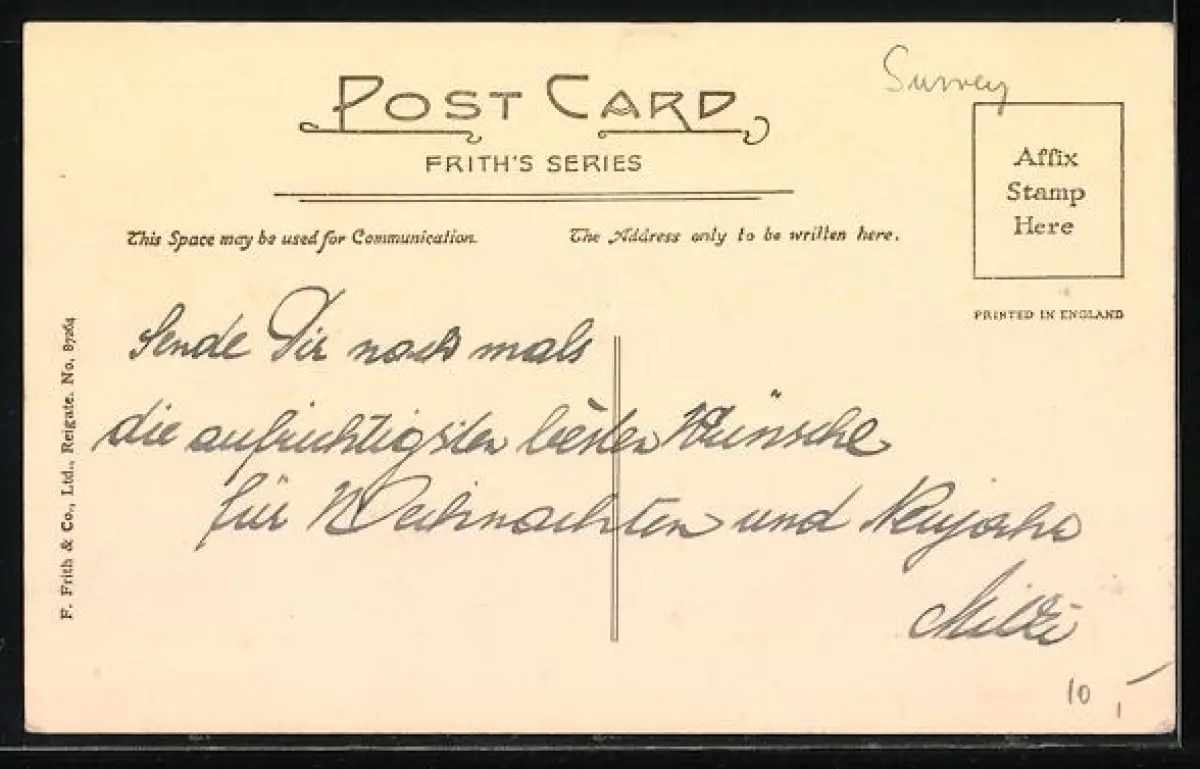 Surrey
POST CARD
FRITH'S SERIES
Affix
Stamp
Here
This Space may be used for Communication.
The Address only to be written here.
PRINTED IN ENGLAND
F. Frith & Co., Ltd., Reigate. No. 87264
Sende Dir noch mals
die aufrichtigsten besten Wünsche
für Weihnachten und Neujahr
10